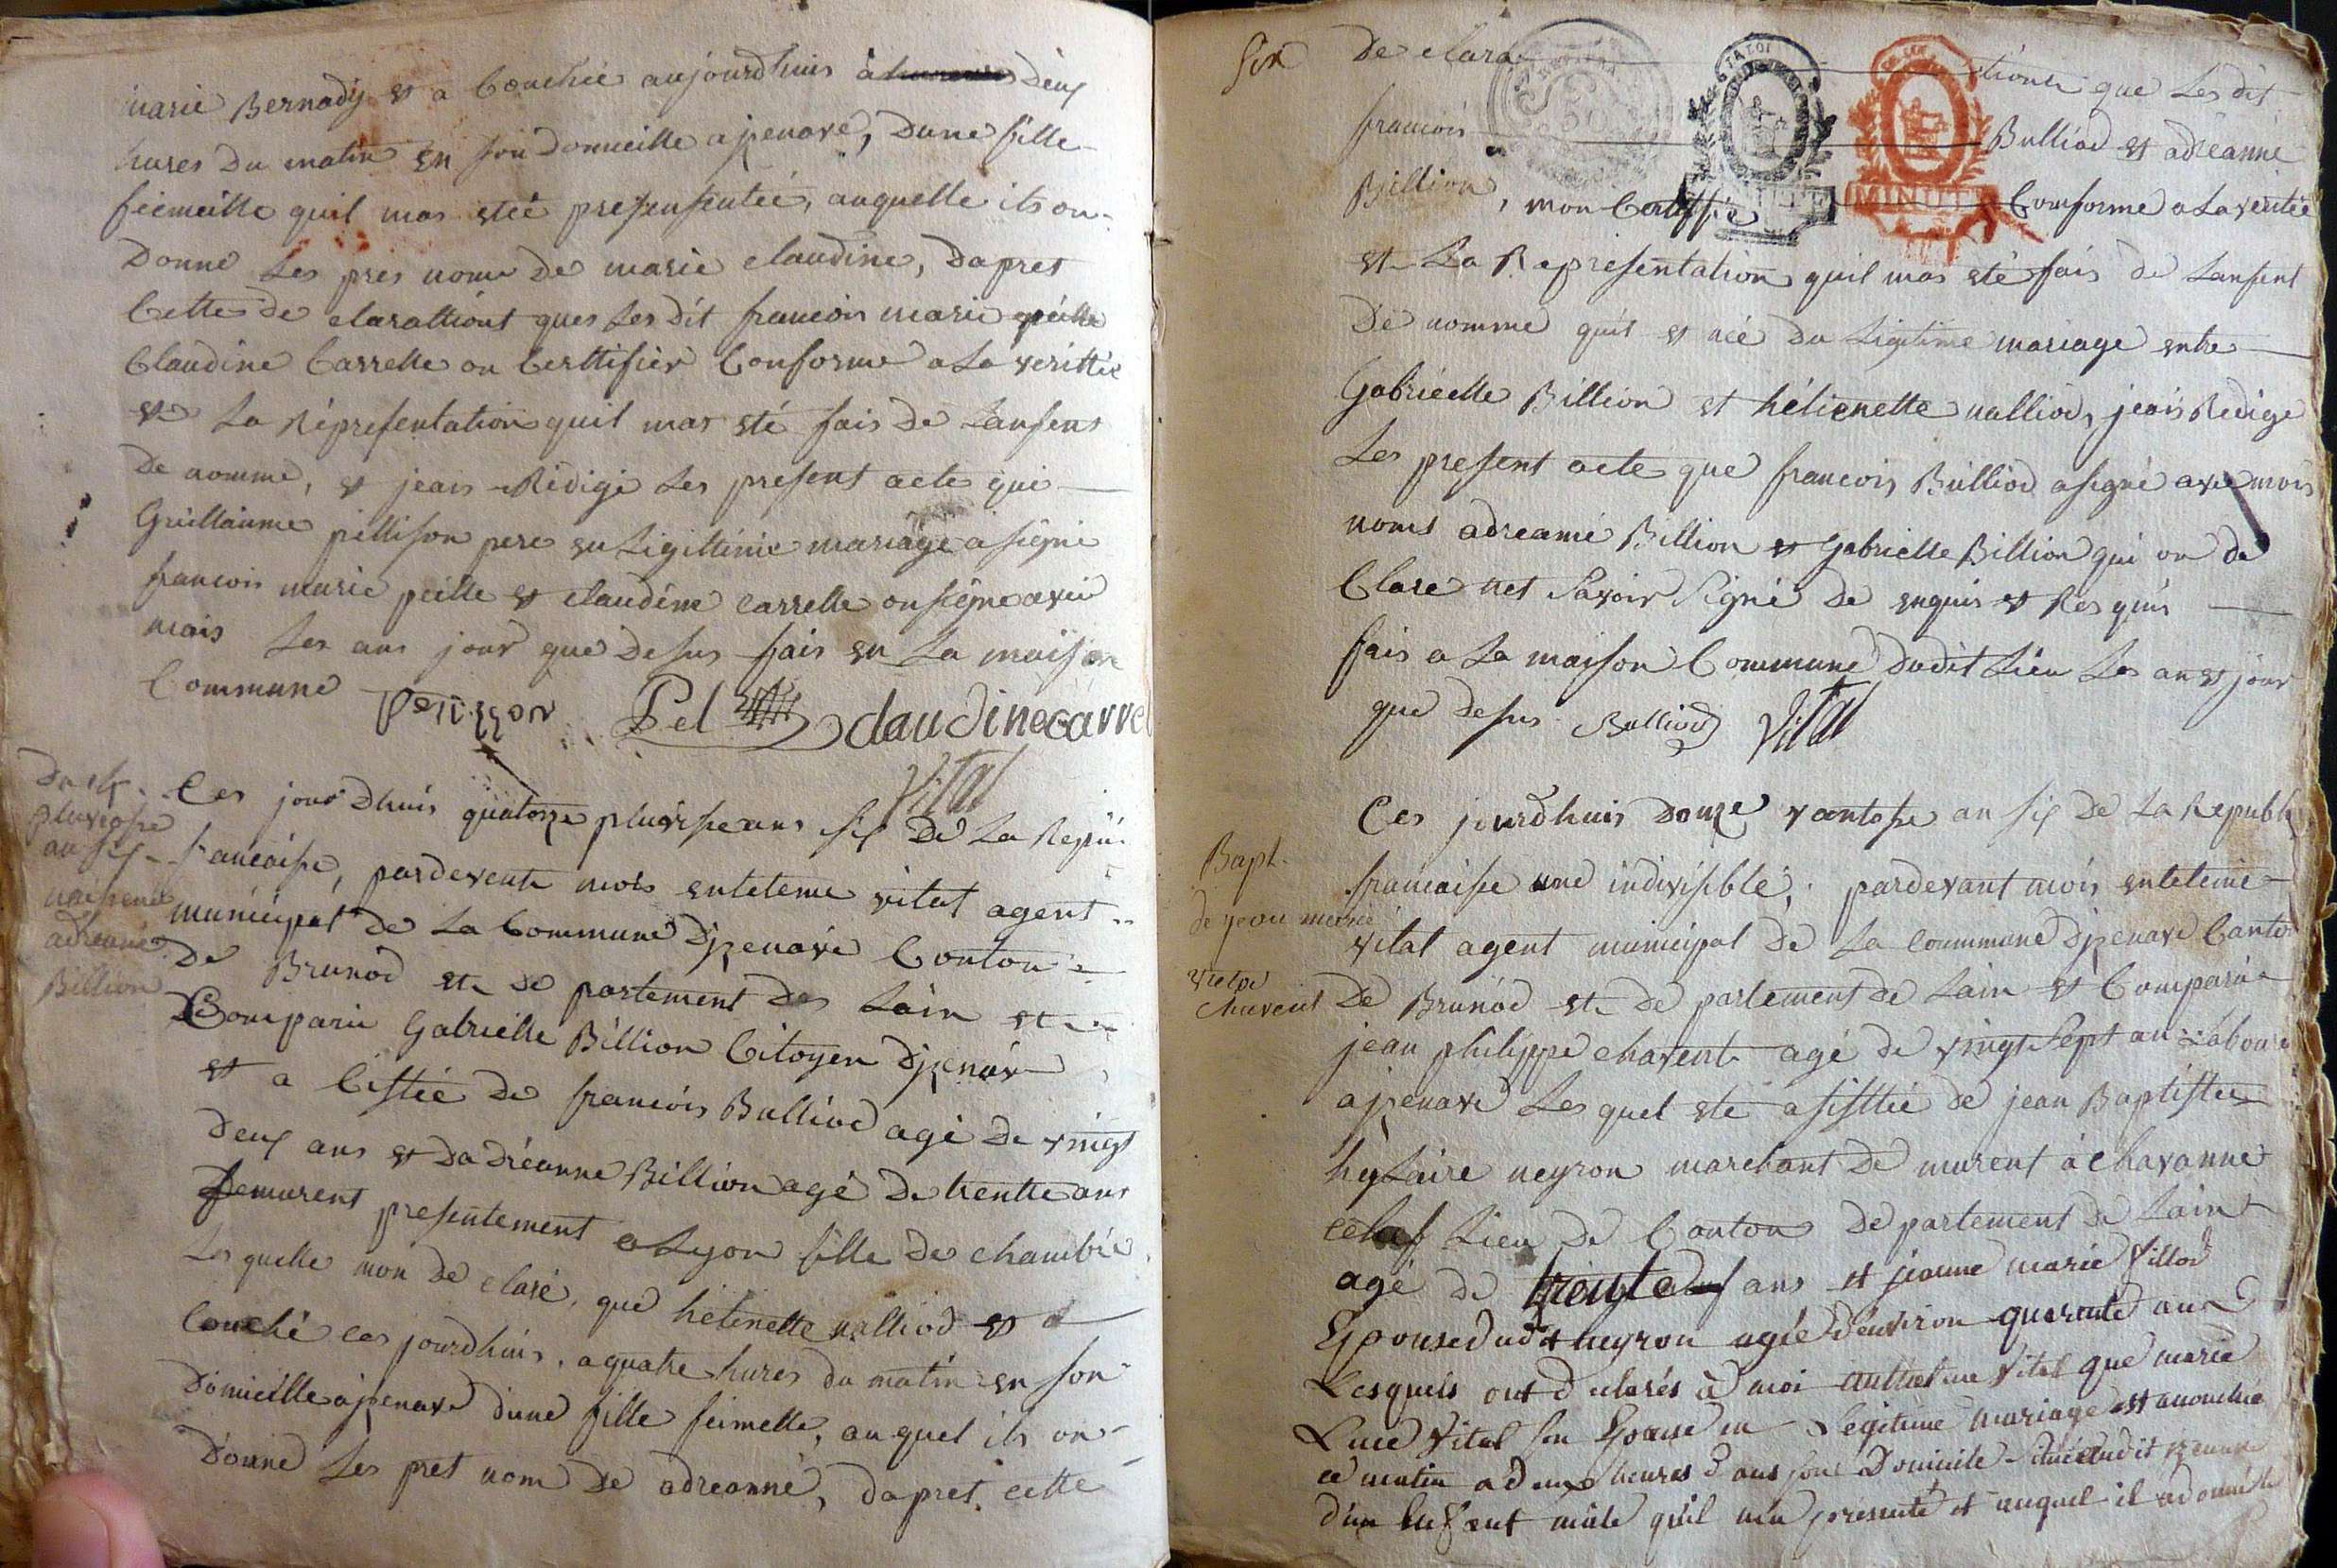 marie Bernady et a Couchée aujourdhuis à deux
hures du matin en son domicille a jzenave, dune fille
feemeille quil mas etéé presensentéé, auquelle ils on
Donne les pres nome de marie claudine, dapret
Cette de clarattiont ques les dit francois marie peille
Claudine Carrelle on Certtifier Conforme a la verittée
et La Répresentation quil mas eté fais de Lansens
de nomme, et jeais Rédigé les present acte qui
Guillaume pillison pere en Ligittime mariage a signé
francois marie peille et claudine carrelle on signe avec
mois les ans jour que desus fais en la maison
Commune Pelisson Pel claudine Carrel
Vital
pluviose
an six
naisence
adreanne
Billion
Ces jourdhuis quatorze pluviose ans six de La Repu
francaise, pardevente mois enteleme vital agent
municipal de La Commune djzenave Conton
de Brunod et de partement des Lain et
Comparu Gabrielle Billion Citoyen djzenave
et a Cistée de francois Bulliod agé de vingt
deux ans et dadréanne Billion agé de trentte ans
demurent presentement a Lyon fille de chambre
Les quelle mon de claré, que hélinette nalliod et a
Couché ces jourdhuis, a quatre hures du matin en son
domicille a jzenave dune fille feimelle, auquel ils on
donne Les pret nom de adreanne, dapret cette
Six de clara tionts que Les dit
francois Bulliod et adreanne
Billion, mon Certiffie Conforme a La veritée
et La Representation quil mas eté fais de Lansent
de nomme quil et née du Ligitime mariage entre
Gabriéelle Billion et hélienette nalliod, jeais Redige
Les present acte que francois Bulliod a signé avec mois
noms adreanne Billion et Gabrielle Billion qui on de
Clare net Savoir Signé de enquis et Res quis
fais a La maison Commune dudit Lieu Les an et jour
que desus Bulliod Vital
MINUTE
Bapt.
de jean marie
victor
chavent
Ces jourdhuis douze vantose an six de La Republi
francaise une indivisible, pardevant mois enteleme
vital agent municipal de La Coummune djzenave Canto
De Brunod et de partement de Lain et Comparu
jean philippe chavent agé de vingt Sept an Laboure
a jzenave Les quel eté a sisttée de jean Baptistte
hylaire neyron marchant de murent à chavanne
chef Lieu de Conton de partement de Lain
agé de trente ans et jeanne marie fillod
Epouse dudit neyron agée d'environ quarante ans
Lesquels ont declarés à moi Vital que marie
Luce Vital son Epouse en Legitime mariage est acouchée
ce matin a deux heures dans son Domicile situé audit jzenave
d'un Enfent mâle qu'il m'a presenté et auquel il a donné le